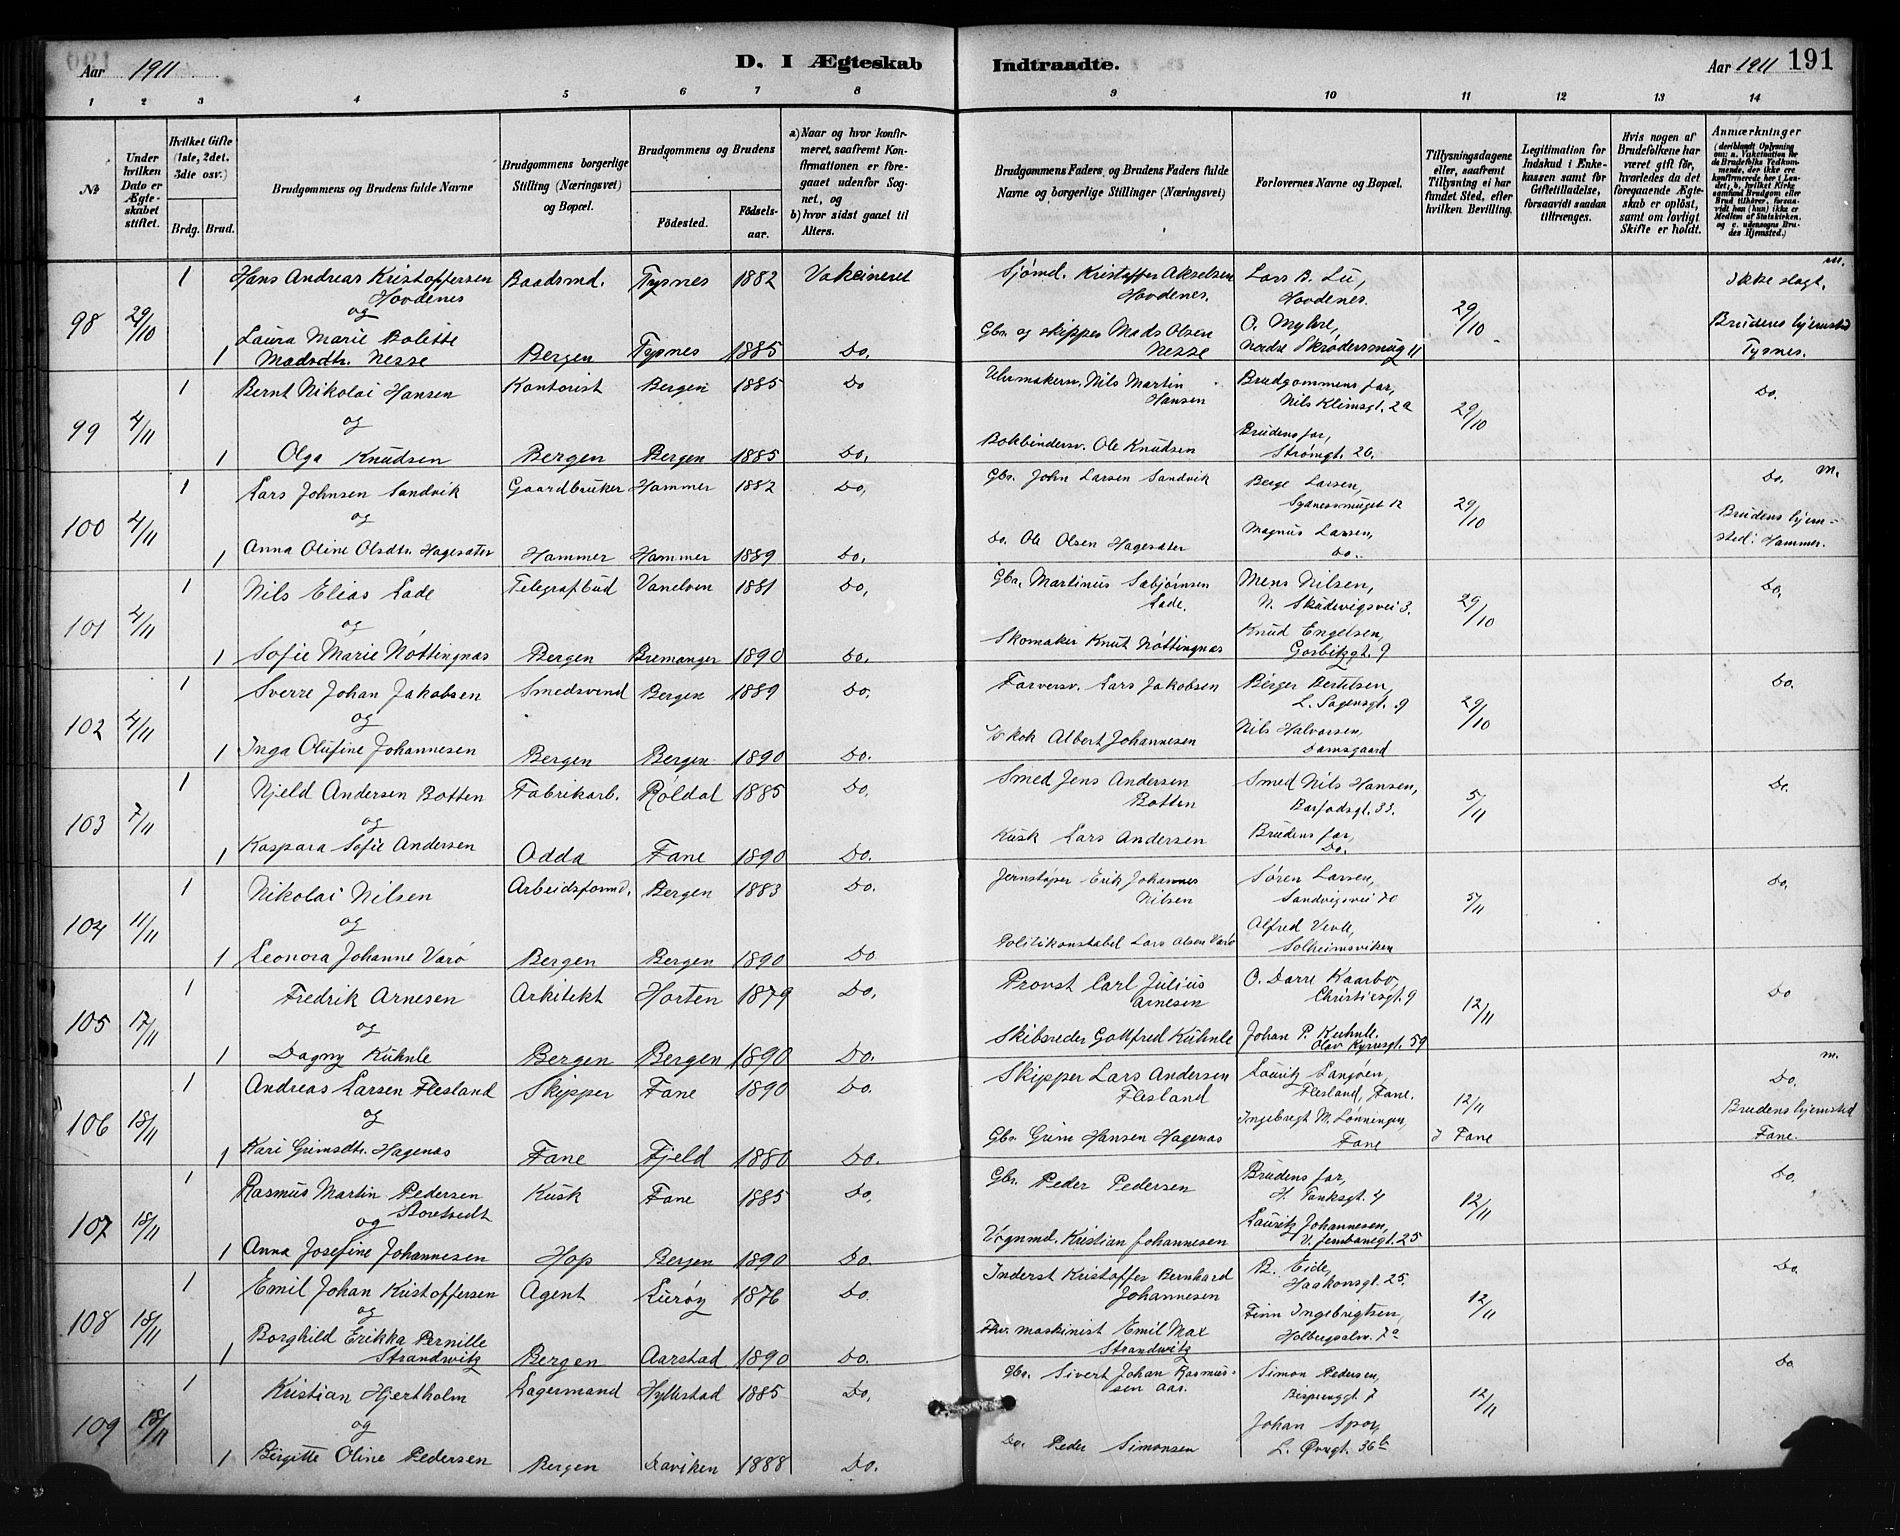 Aar 1911
D. I Ægteskab Indtraadte.
Aar 1911 191
1 2 3 4 5 6 7 8 9 10 11 12 13 14
No
Under hvilken Dato er Ægteskabet stiftet.
Hvilket Gifte (1ste, 2det. 3die osv.)
Brdg. Brud.
Brudgommens og Brudens fulde Navne
Brudgommens borgerlige Stilling (Næringsvei) og Bopæl.
Brudgommens og Brudens
Fødested. Fødselsaar.
a) Naar og hvor konfirmeret, saafremt Konfirmationen er foregaaet udenfor Sognet, og
b) hvor sidst gaaet til Alters.
Brudgommens Faders, og Brudens Faders fulde Navne og borgerlige Stillinger (Næringsvei)
Forlovernes Navne og Bopæl.
Tillysningsdagene eller, saafremt Tillysning ei har fundet Sted, efter hvilken Bevilling.
Legitimation for Indskud i Enkekassen samt for Giftetilladelse, forsaavidt saadan tiltrænges.
Hvis nogen af Brudefolkene har været gift før, hvorledes da det foregaaende Ægteskab er opløst, samt om lovligt Skifte er holdt.
Anmærkninger
98 29/10 1 Hans Andreas Kristoffersen Baadsmd. Tysnes 1882 Vakcineret Sjømd. Kristoffer Akselsen Lars B. Lu, 29/10 Ikke slegt. m.
Hovdenes Hovdenes. Hovdenes.
og
Laura Marie Bolette Gbr. og skipper Mads Olsen O. Myhre, Brudens hjemsted
1 Madsdtr. Nesse Bergen Tysnes 1885 Do. Nesse nedre Skrødersmug 11 Tysnes.
99 4/11 1 Bernt Nikolai Hansen Kontorist Bergen 1885 Do Uhrmakersv. Nils Martin Brudgommens far, 29/10 Do.
Hansen Nils Klimsgt. 2a
og
1 Olga Knudsen Bergen Bergen 1885 Do. Bokbindersv. Ole Knudsen Brudens far,
Strømgt. 26.
100 4/11 1 Lars Johnsen Sandvik Gaardbruker Hammer 1882 Do. Gbr. John Larsen Sandvik Berge Larsen, 29/10 Do. m.
og
1 Anna Oline Olsdtr. Hagesæter Hammer Hammer 1889 Do. Do. Ole Olsen Hagesæter Magnus Larsen, Brudens hjem-
Do. sted: Hammer.
101 4/11 1 Nils Elias Lade Telegrafbud Vanelven 1881 Do, Gbr. Martinus Sæbjørnsen Mons Nilsen, 29/10 Do,
Lade. N. Skudevigsvei 3.
og
1 Sofie Marie Nøttingnæs Bergen Bremanger 1890 Do. Skomaker Knut Nøttingnæs Knud Engelsen,
102 4/11 1 Sverre Johan Jakobsen Smedsvend Bergen 1889 Do. Farversv. Lars Jakobsen Birger Bertelsen, 29/10 Do.
L. Sagensgt. 9
og
1 Inga Olufine Johannesen Bergen Bergen 1890 Do. kok Albert Johannesen Nils Halvorsen,
Damsgaard
103 7/11 1 Njeld Andersen Botten Fabrikarb. Røldal 1885 Do. Smed Jens Andersen Smed Nils Hansen, 5/11 Do.
Botten Barfodsgt. 33.
og
1 Kaspara Sofie Andersen Odda Fane 1890 Do. Kusk Lars Andersen Brudens far,
Do.
104 11/11 1 Nikolai Nilsen Arbeidsformd. Bergen 1883 Do. Jernstøper Erik Johannes Søren Larsen, 5/11 Do.
Nilsen Sandvigsvei 70
og
1 Leonora Johanne Varø Bergen Bergen 1890 Do Politikonstabel Lars Olsen Varø Alfred
Solheimsviken
105 17/11 1 Fredrik Arnesen Arkitekt Horten 1879 Do. Provst Carl Julius O. Dorre Kaarbø, 12/11 Do
Arnesen Christiesgt. 9
og
1 Dagny Kühnle Bergen Bergen 1890 Do. Skibsreder Gottfred Kühnle Johan P. Kuhnle.
Olav Kyrresgt. 59
106 18/11 1 Andreas Larsen Flesland Skipper Fane 1890 Do. Skipper Lars Andersen Lauritz Langøen, 12/11 Do. m.
Flesland Flesland, Fane.
og
1 Kari Grimsdtr. Hagenæs Fane Fjeld 1880 Do. Gbr. Grim Hansen Hagenæs Ingebregt M. Lønningen, i Fane Brudens hjemsted
Fane Fane.
107 18/11 1 Rasmus Martin Pedersen Kusk Fane 1885 Do. Gbr. Peder Pedersen Brudens far, 12/11 Do.
Storetvedt H. Tanksgt. 4
og
1 Anna Josefine Johannesen Hop Bergen 1890 Do. Vognmd. Kristian Johannesen Lauritz Johannesen,
V. Jernbanegt. 25
108 18/11 1 Emil Johan Kristoffersen Agent Lurøy 1876 Do. Inderst Kristoffer Bernhard B. Eide, 12/11 Do.
Johannesen Haakonsgt. 25.
og
Borghild Erikka Pernille Fhv. maskinist Emil Max Finn Ingebrigtsen,
1 Strandwitz Bergen Aarstad 1890 Do. Strandwitz Holbergsalm. 7a
109 18/11 1 Kristian Hjertholm Lagermand Hyllestad 1885 Do, Gbr. Sivert Johan Rasmus- Simon Pedersen, 12/11 Do
sen Aar. Bispenggt 7
og
1 Bergitte Oline Pedersen Bergen Daviken 1888 Do. Do. Peder Simonsen Johan Spor,
L. Øvregt. 36b